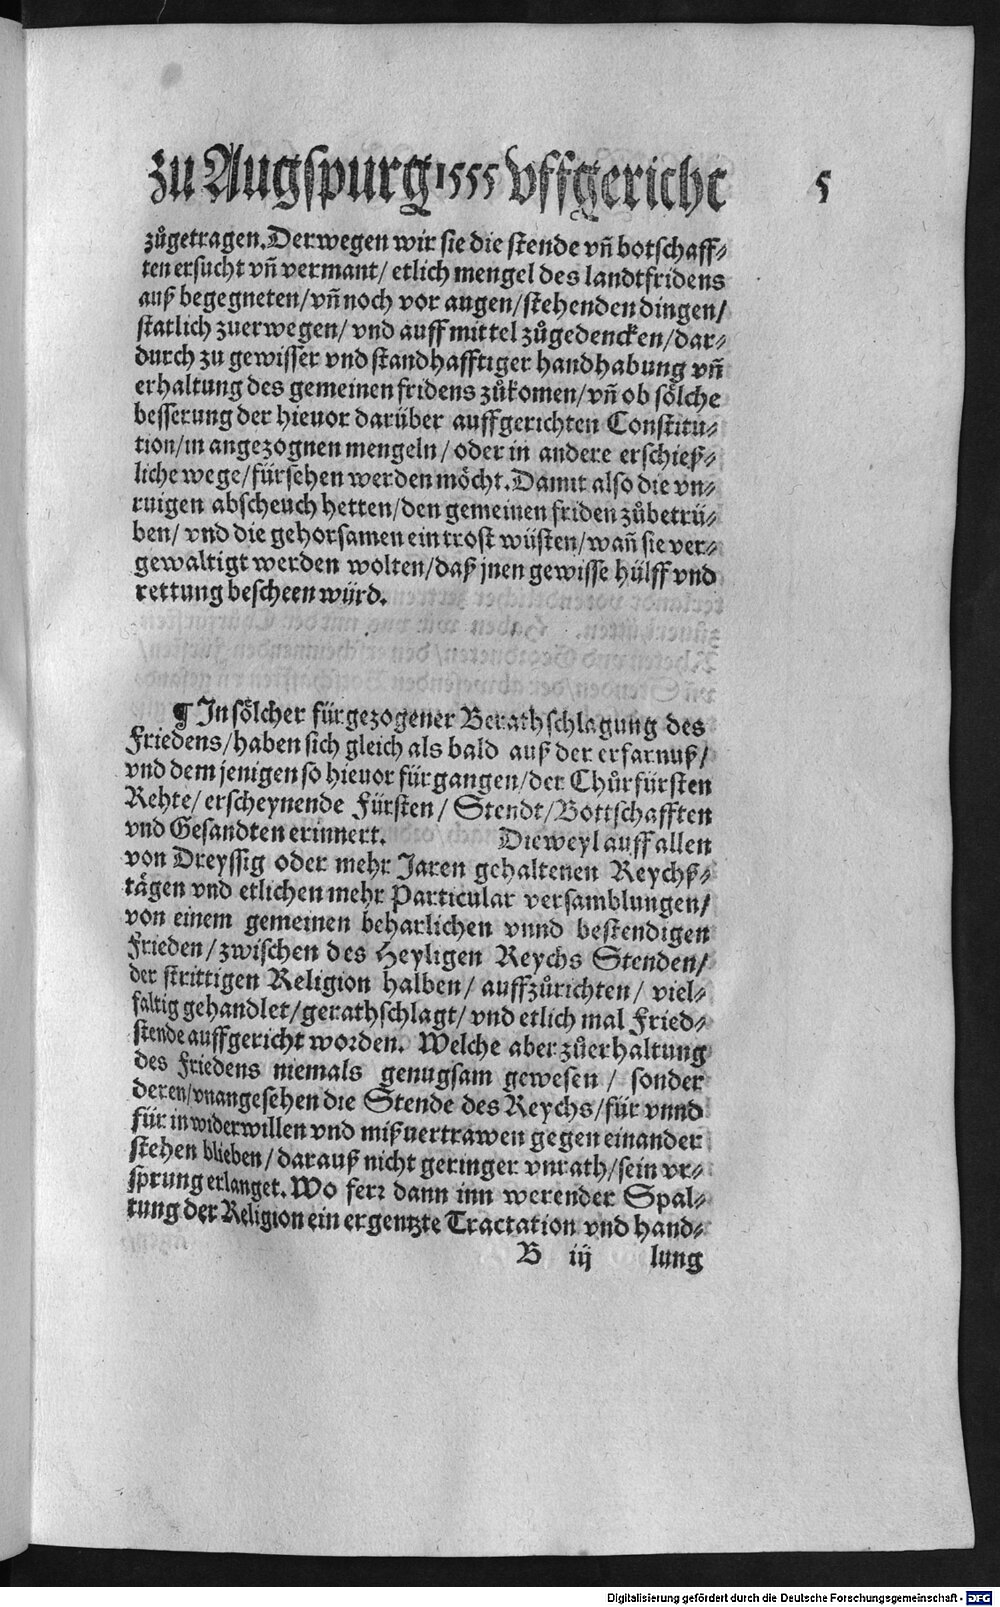 zu Augspurg 1555 vffgericht 5
zůgetragen. Derwegen wir sie die stende vñ botschaff⸗
ten ersucht vñ vermant / etlich mengel des landtfridens
auß begegneten / vñ noch vor augen / stehenden dingen /
statlich zuerwegen / vnd auff mittel zůgedencken / dar⸗
durch zu gewisser vnd standhafftiger handhabung vñ
erhaltung des gemeinen fridens zůkomen / vñ ob sölche
besserung der hieuor darüber auffgerichten Constitu⸗
tion / in angezognen mengeln / oder in andere erschieß⸗
liche wege / fürsehen werden möcht. Damit also die vn⸗
ruigen abscheuch hetten / den gemeinen friden zůbetrü⸗
ben / vnd die gehorsamen ein trost wüsten / wañ sie ver⸗
gewaltigt werden wolten / daß jnen gewisse hülff vnd
rettung bescheen würd.
¶ In sölcher fürgezogener Berathschlagung des
Friedens / haben sich gleich als bald auß der erfarnuß /
vnd dem jenigen so hieuor fürgangen / der Chůrfürsten
Rehte / erscheynende Fürsten / Stendt / Bottschafften
vnd Gesandten erinnert. Dieweyl auff allen
von Dreyssig oder mehr Jaren gehaltenen Reychß⸗
tägen vnd etlichen mehr Particular versamblungen /
von einem gemeinen beharlichen vnnd bestendigen
Frieden / zwischen des Heyligen Reychs Stenden /
der strittigen Religion halben / auffzůrichten / viel⸗
faltig gehandlet / gerathschlagt / vnd etlich mal Fried⸗
stende auffgericht worden. Welche aber zůerhaltung
des Friedens niemals genugsam gewesen / sonder
deren / vnangesehen die Stende des Reychs / für vnnd
für in widerwillen vnd mißuertrawen gegen einander
stehen blieben / darauß nicht geringer vnrath / sein vr⸗
sprung erlanget. Wo ferꝛ dann inn werender Spal⸗
tung der Religion ein ergentzte Tractation vnd hand⸗
B iij lung
Digitalisierung gefördert durch die Deutsche Forschungsgemeinschaft - DFG